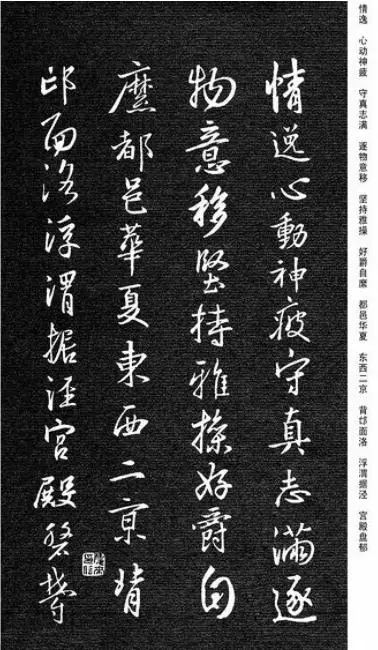 情逸 心动神疲 守真志满 逐物意移 坚持雅操 好爵自縻 都邑华夏 东西二京 背邙面洛 浮渭据泾 宫殿盘郁
情逸心動神疲守真志滿逐
物意移堅持雅操好爵自
縻都邑華夏東西二京背
邙面洛浮渭据涇宮殿磐鬱